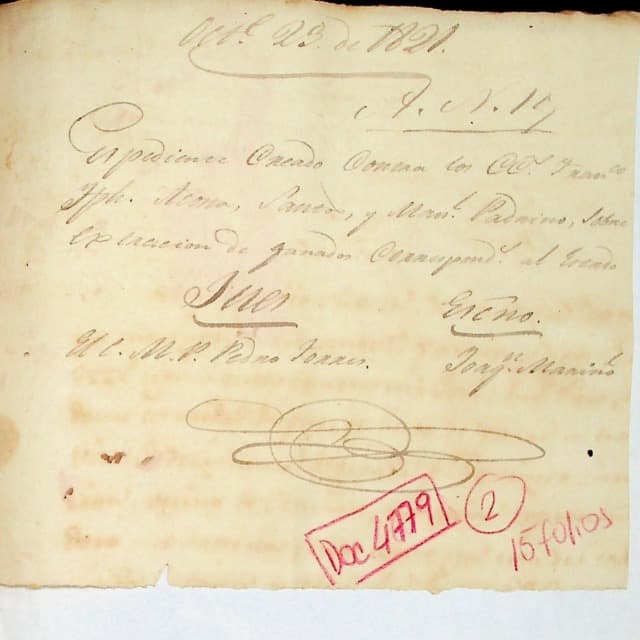 Oct.e 23. de 1821.
A. N. 19
Expediente Creado Contra los CC.s Fran.co
Jph. Acona, Santos, y Man.l Padrino, sobre
extracion de ganados Correspond.s al Estado
Juez
Escno.
El C. M. P. Pedro Torres.
Joaq.n Mariño
Doc 4779
2
15 folios